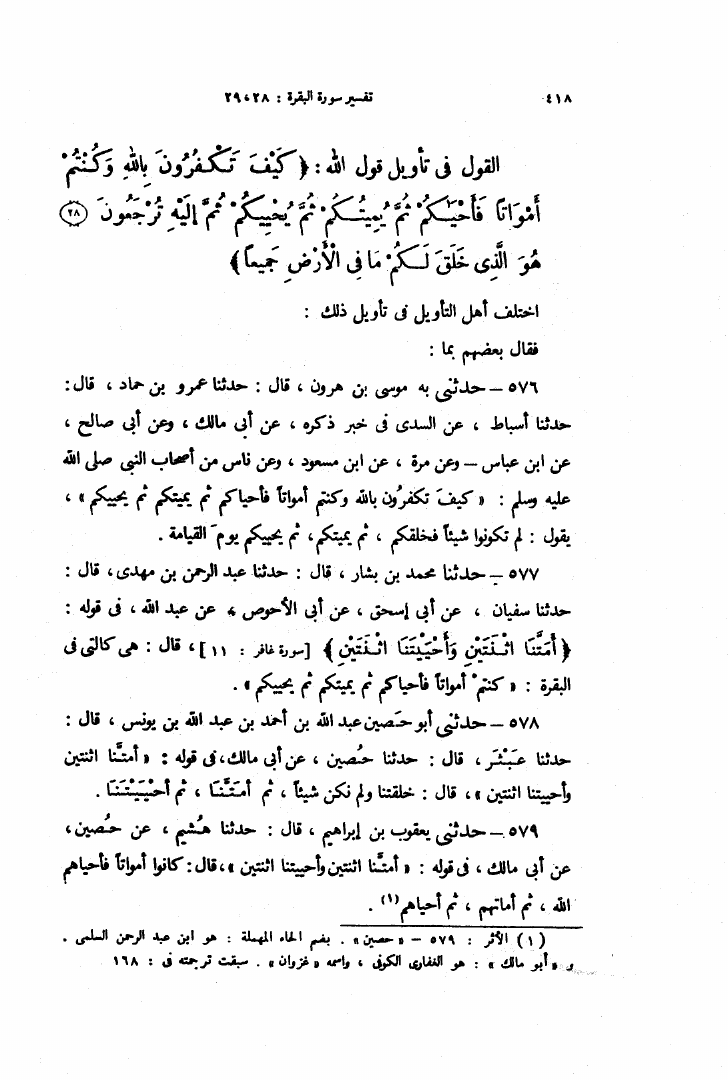 ٤١٨ تفسير سورة البقرة : ٢٨ ، ٢٩
القول فى تأويل قول الله : ﴿ كَيْفَ تَكْفُرُونَ بِاللهِ وَكُنْتُمْ
أَمْوَاتًا فَأَحْيَٰكُمْ ثُمَّ يُمِيتُكُمْ ثُمَّ يُحْيِيكُمْ ثُمَّ إِلَيْهِ تُرْجَعُونَ ٢٨
هُوَ الَّذِى خَلَقَ لَكُمْ مَا فِى الْأَرْضِ جَمِيعًا ﴾
اختلف أهل التأويل فى تأويل ذلك :
فقال بعضهم بما :
٥٧٦ – حدثنى به موسى بن هرون ، قال : حدثنا عمرو بن حماد ، قال :
حدثنا أسباط ، عن السدى فى خبر ذكره ، عن أبى مالك ، وعن أبى صالح ،
عن ابن عباس – وعن مرة ، عن ابن مسعود ، وعن ناس من أصحاب النبى صلى الله
عليه وسلم : « كيفَ تكفرُون بالله وكنتم أمواتاً فأحياكم ثم يميتكم ثم يحييكم » ،
يقول : لم تكونوا شيئاً فخلقكم ، ثم يميتكم ، ثم يحييكم يومَ القيامة .
٥٧٧ – حدثنا محمد بن بشار ، قال : حدثنا عبد الرحمن بن مهدى ، قال :
حدثنا سفيان ، عن أبى إسحق ، عن أبى الأحوص ، عن عبد الله ، فى قوله :
﴿ أَمَتَّنَا اثْنَتَيْنِ وَأَحْيَيْتَنَا اثْنَتَيْنِ ﴾ [ سورة غافر : ١١ ] ، قال : هى كالتى فى
البقرة : « كنتمْ أمواتاً فأحياكم ثم يميتكم ثم يحييكم » .
٥٧٨ – حدثنى أبو حَصين عبد الله بن أحمد بن عبد الله بن يونس ، قال :
حدثنا عَبْثَر ، قال : حدثنا حُصين ، عن أبى مالك ، فى قوله : « أمتَّنا اثنتين
وأحييتنا اثنتين » ، قال : خلقتنا ولم نكن شيئاً ، ثم أمَتَّنَا ، ثم أحْيَيْتَنَا .
٥٧٩ – حدثنى يعقوب بن إبراهيم ، قال : حدثنا هُشيم ، عن حُصين ،
عن أبى مالك ، فى قوله : « أمتَّنا اثنتين وأحييتنا اثنتين » ، قال : كانوا أمواتاً فأحياهم
الله ، ثم أماتهم ، ثم أحياهم (١) .
( ١ ) الأثر : ٥٧٩ – « حصين » . بضم الحاء المهملة : هو ابن عبد الرحمن السلمى .
و « أبو مالك » : هو الغفارى الكوفى ، واسمه « غزوان » . سبقت ترجمته فى : ١٦٨